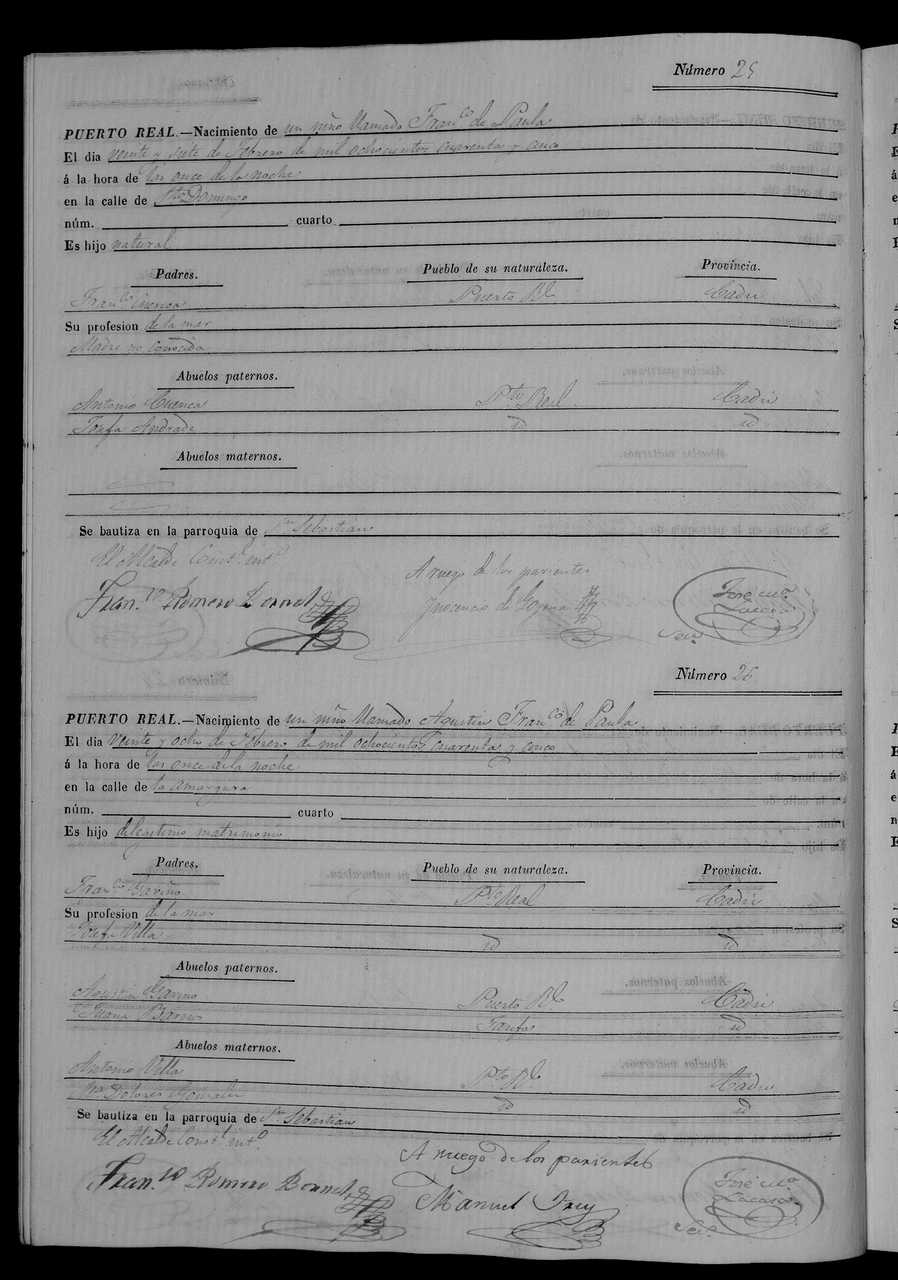 Número 25
PUERTO REAL.—Nacimiento de un niño llamado Franco de Paula
El dia veinte y siete de Febrero de mil ochocientos cuarenta y cinco
á la hora de las once de la noche
en la calle de Sto Domingo
núm. cuarto
Es hijo natural
Padres. Pueblo de su naturaleza. Provincia.
Franco Cuenca Puerto Rl Cadiz
Su profesion de la mar
Madre no conocida
Abuelos paternos.
Antonio Cuenca Pto Real Cadiz
Josefa Andrade id id
Abuelos maternos.
Se bautiza en la parroquia de Sn Sebastian
El Alcalde Constl intº
A ruego de los parientes
Franco Romero Bonnet
José
Número 26
PUERTO REAL.—Nacimiento de un niño llamado Agustin Franco de Paula
El dia veinte y ocho de Febrero de mil ochocientos cuarenta y cinco
á la hora de las once de la noche
en la calle de la amargura
núm. cuarto
Es hijo de legitimo matrimonio
Padres. Pueblo de su naturaleza. Provincia.
Franco Pto Real Cadiz
Su profesion de la mar
Josefa Villa id id
Abuelos paternos.
Agustin Puerto Rl Cadiz
Juana Tarifa id
Abuelos maternos.
Antonio Villa Pto Rl Cadiz
Ma Dolores Gonzalez id id
Se bautiza en la parroquia de Sn Sebastian
El Alcalde Constl intº
A ruego de los parientes
Franco Romero Bonnet
Manuel Frey
José